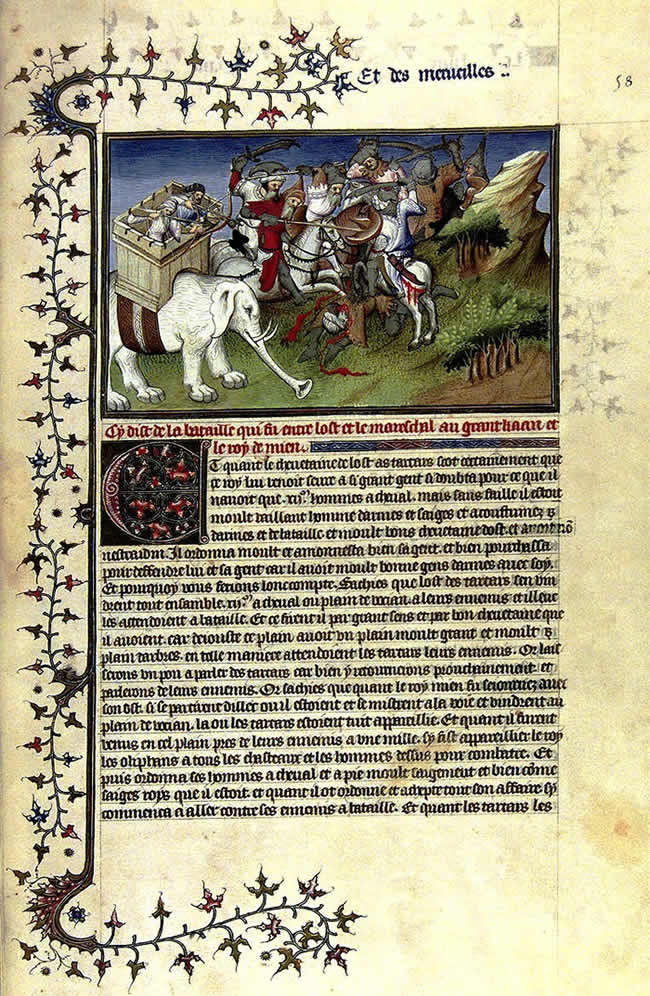 Et des merueilles
58
Cy dist de la bataille qui fu entre lost et le mareschal au grant kaan et
le roy de mien
Et quant le cheuetaine de lost as tartars scot certainement que
ce roy lui venoit seure a si grant gent si doubta pour ce que il
nauoit que .xii.ͫ hommes a cheual. mais sans faille il estoit
moult vaillant homme darmes et saiges et acoustumez
darmes et de bataille et moult bons cheuetaine dost et auoit nō
nestradin. Il ordonna moult et amonnesta bien sa gent. et bien pourchassa
pour deffendre lui et sa gent car il auoit moult bonne gens darmes auec soy.
Et pourquoy vous ferions lonc compte. Sachies que lost des tartars sen vin
drent tout ensamble .xij.ͫ a cheual ou plain de vocian. a leurs ennemis et illeuc
les attendoient a bataille. Et ce firent il par grant sens et par bon cheuetaine que
il auoient. car deiouste ce plain auoit vn plain moult grant et moult
plain darbres. en telle maniere attendoient les tartars leurs ennemis. Or lais
serons vn pou a parler des tartars car bien y retournerons prouchainement et
parlerons de leurs ennemis. Or sachies que quant le roy mien fu seiournez auec
son ost. si se partirent dillec ou il estoient et se mistrent a la voie et vindrent au
plain de vocian. la ou les tartars estoient tuit appareillie. Et quant il furent
venus en cel plain pres de leurs ennemis a vne mille. sy fist appareillier le roy
les oliphans a tous les chasteaux et les hommes dessus pour combatre. Et
puis ordonna ses hommes a cheual et a pie moult saigement et bien cōme
saiges roys que il estoit. et quant il ot ordonne et tout son affaire sy
commenca a aller contre ses ennemis a bataille. Et quant les tartars les